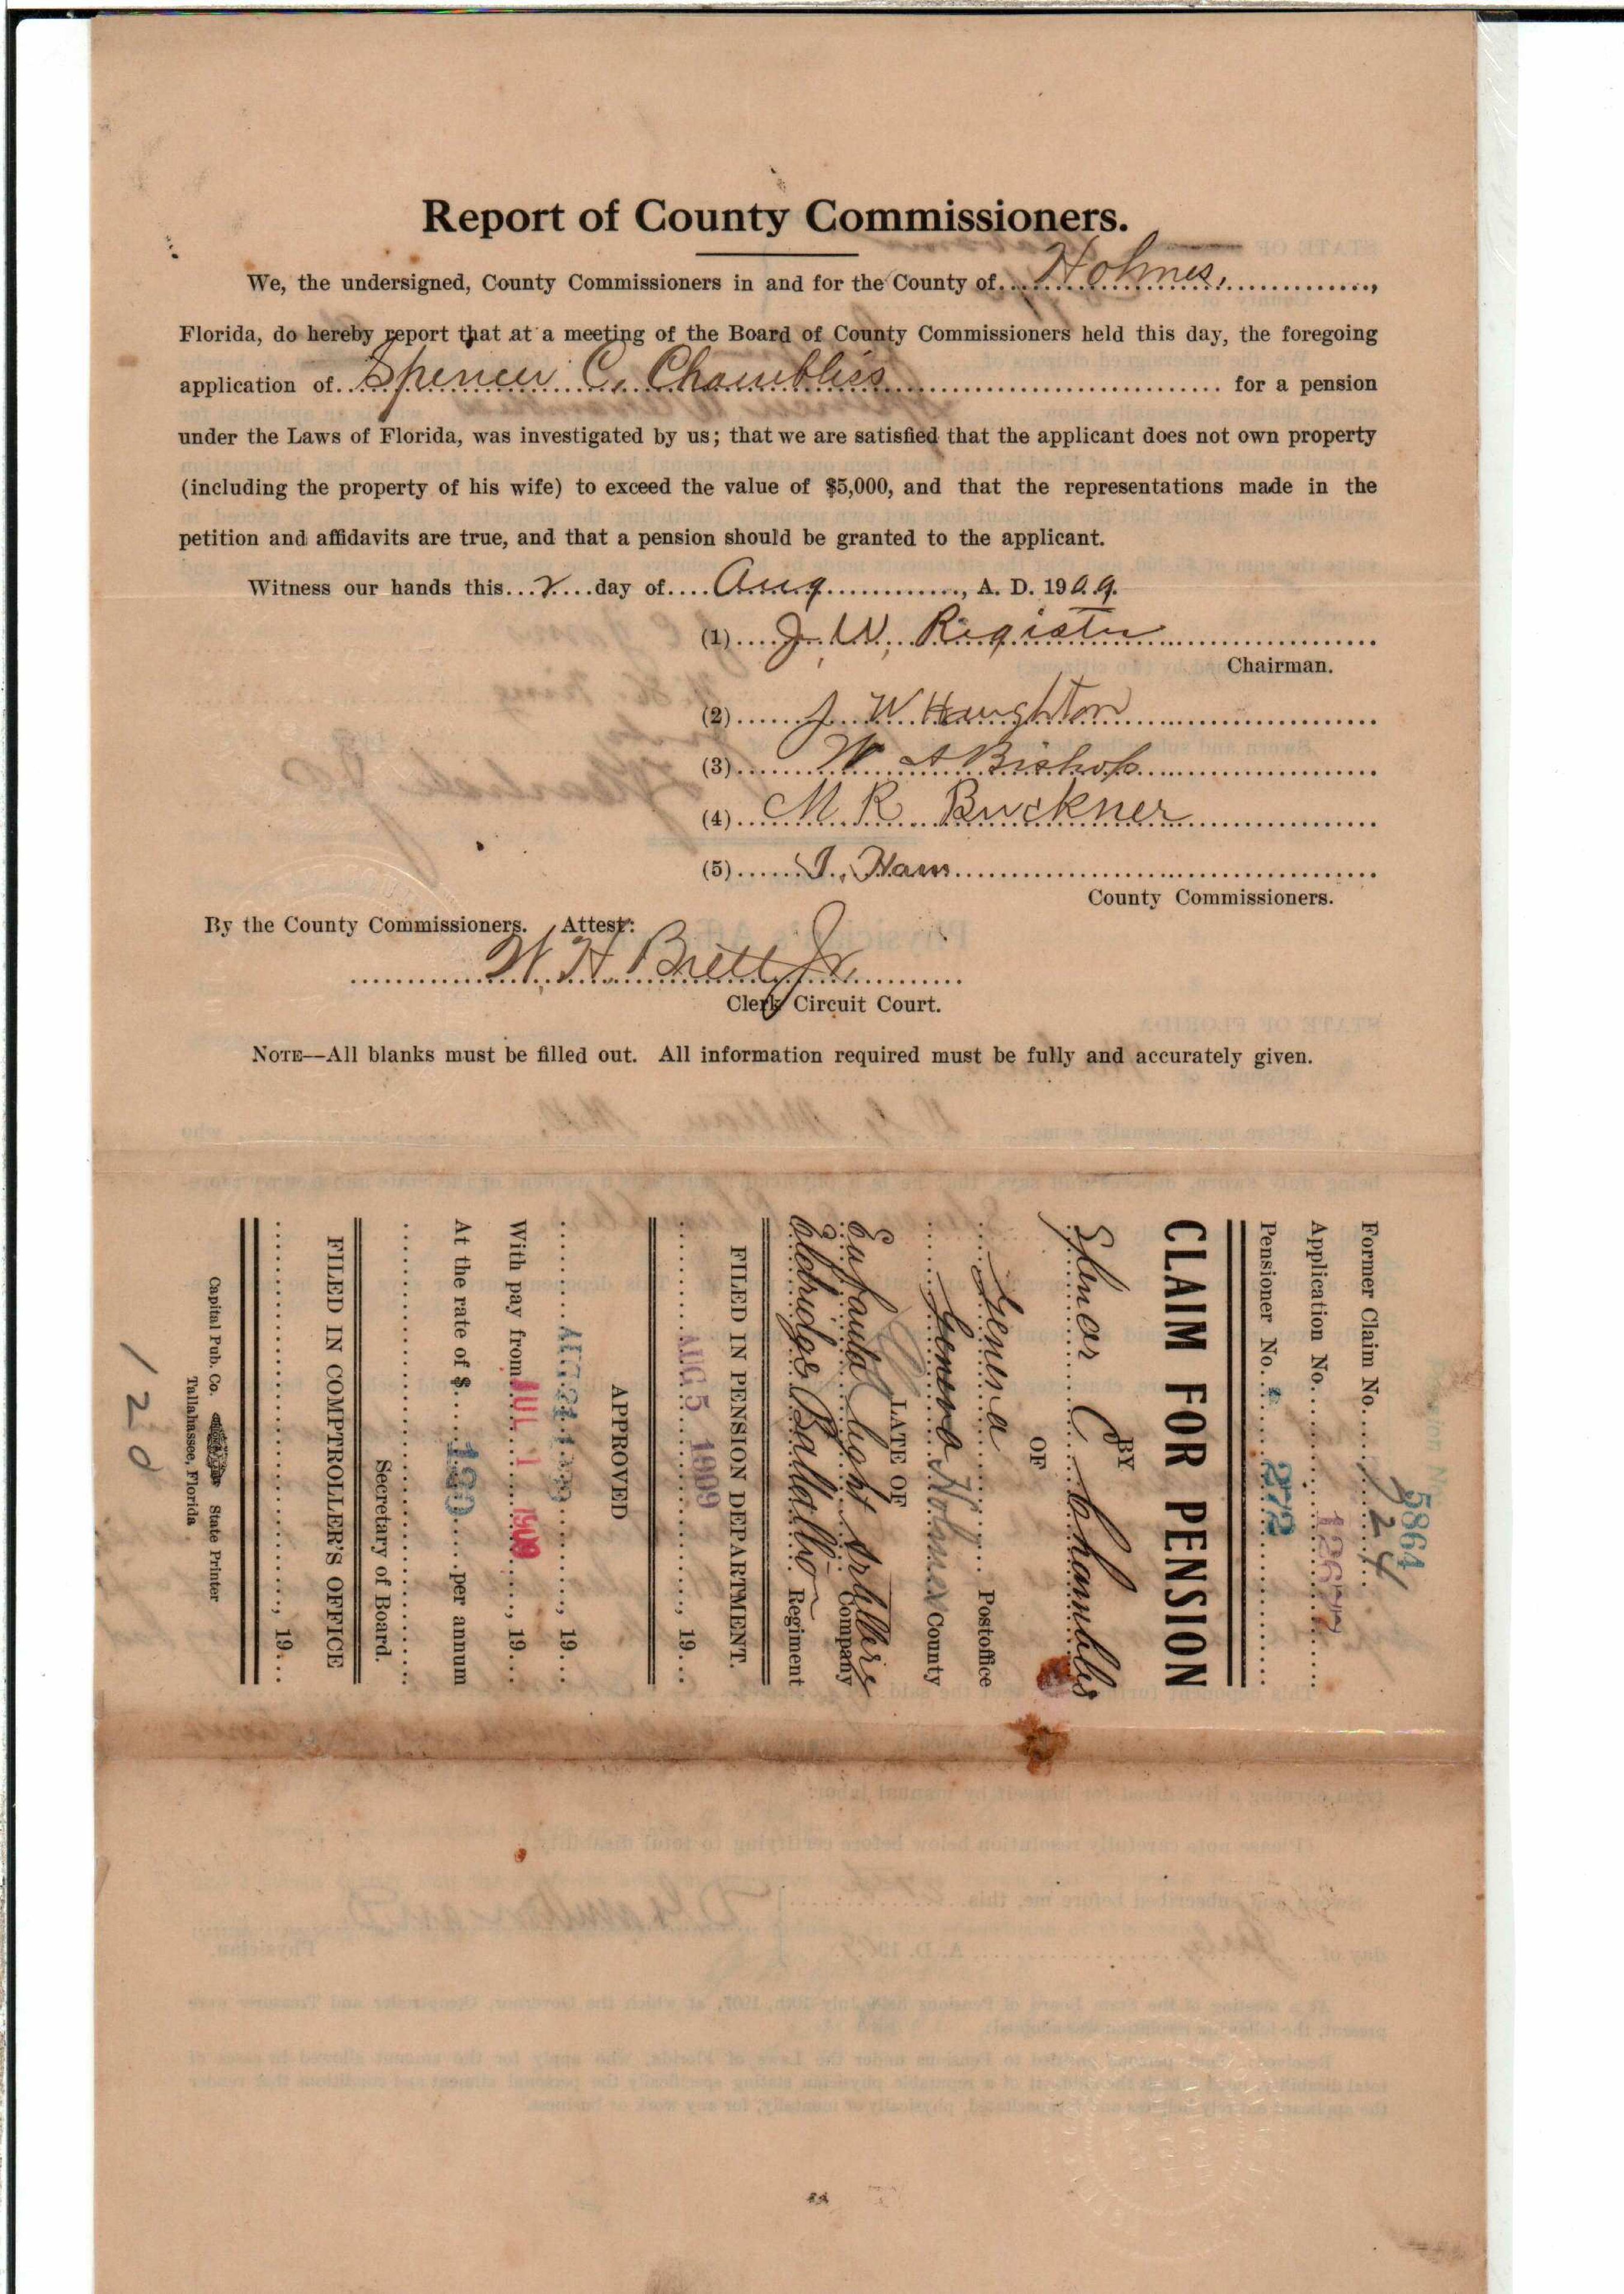 Report of County Commissioners.
We, the undersigned, County Commissioners in and for the County of Holmes,
Florida, do hereby report that at a meeting of the Board of County Commissioners held this day, the foregoing
application of Spencer C. Chambliss for a pension
under the Laws of Florida, was investigated by us; that we are satisfied that the applicant does not own property
(including the property of his wife) to exceed the value of $5,000, and that the representations made in the
petition and affidavits are true, and that a pension should be granted to the applicant.
Witness our hands this 2 day of Aug, A. D. 1909.
(1) J. W. Register
Chairman.
(2) J W Haughton
(3) W A Bishop
(4) M R Buckner
(5) J. Ham
County Commissioners.
By the County Commissioners. Attest:
W. H. Brett Jr.
Clerk Circuit Court.
NOTE—All blanks must be filled out. All information required must be fully and accurately given.
5864
Former Claim No. 724
Application No. 12677
Pensioner No. 272
CLAIM FOR PENSION
BY
C Chambliss
OF
Geneva Postoffice
Geneva Holmes County
LATE OF
Eufaula Light Company
Eldridge Regiment
FILED IN PENSION DEPARTMENT.
AUG 5 1909, 19
APPROVED
AUG 31 1909, 19
With pay from JUL 1 1909, 19
At the rate of $ 120 per annum
Secretary of Board.
FILED IN COMPTROLLER'S OFFICE
, 19
Capital Pub. Co. State Printer
Tallahassee, Florida
120